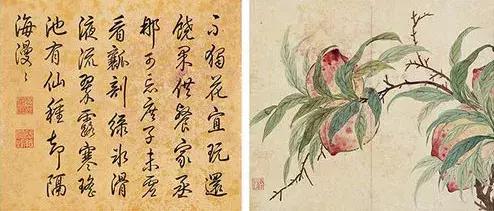 不獨花宜玩還
饒果供餐家丞
那可忘庶子未
看瓤刻綠冰滑
液流翠露寒瑤
池有仙種却隔
海漫〻